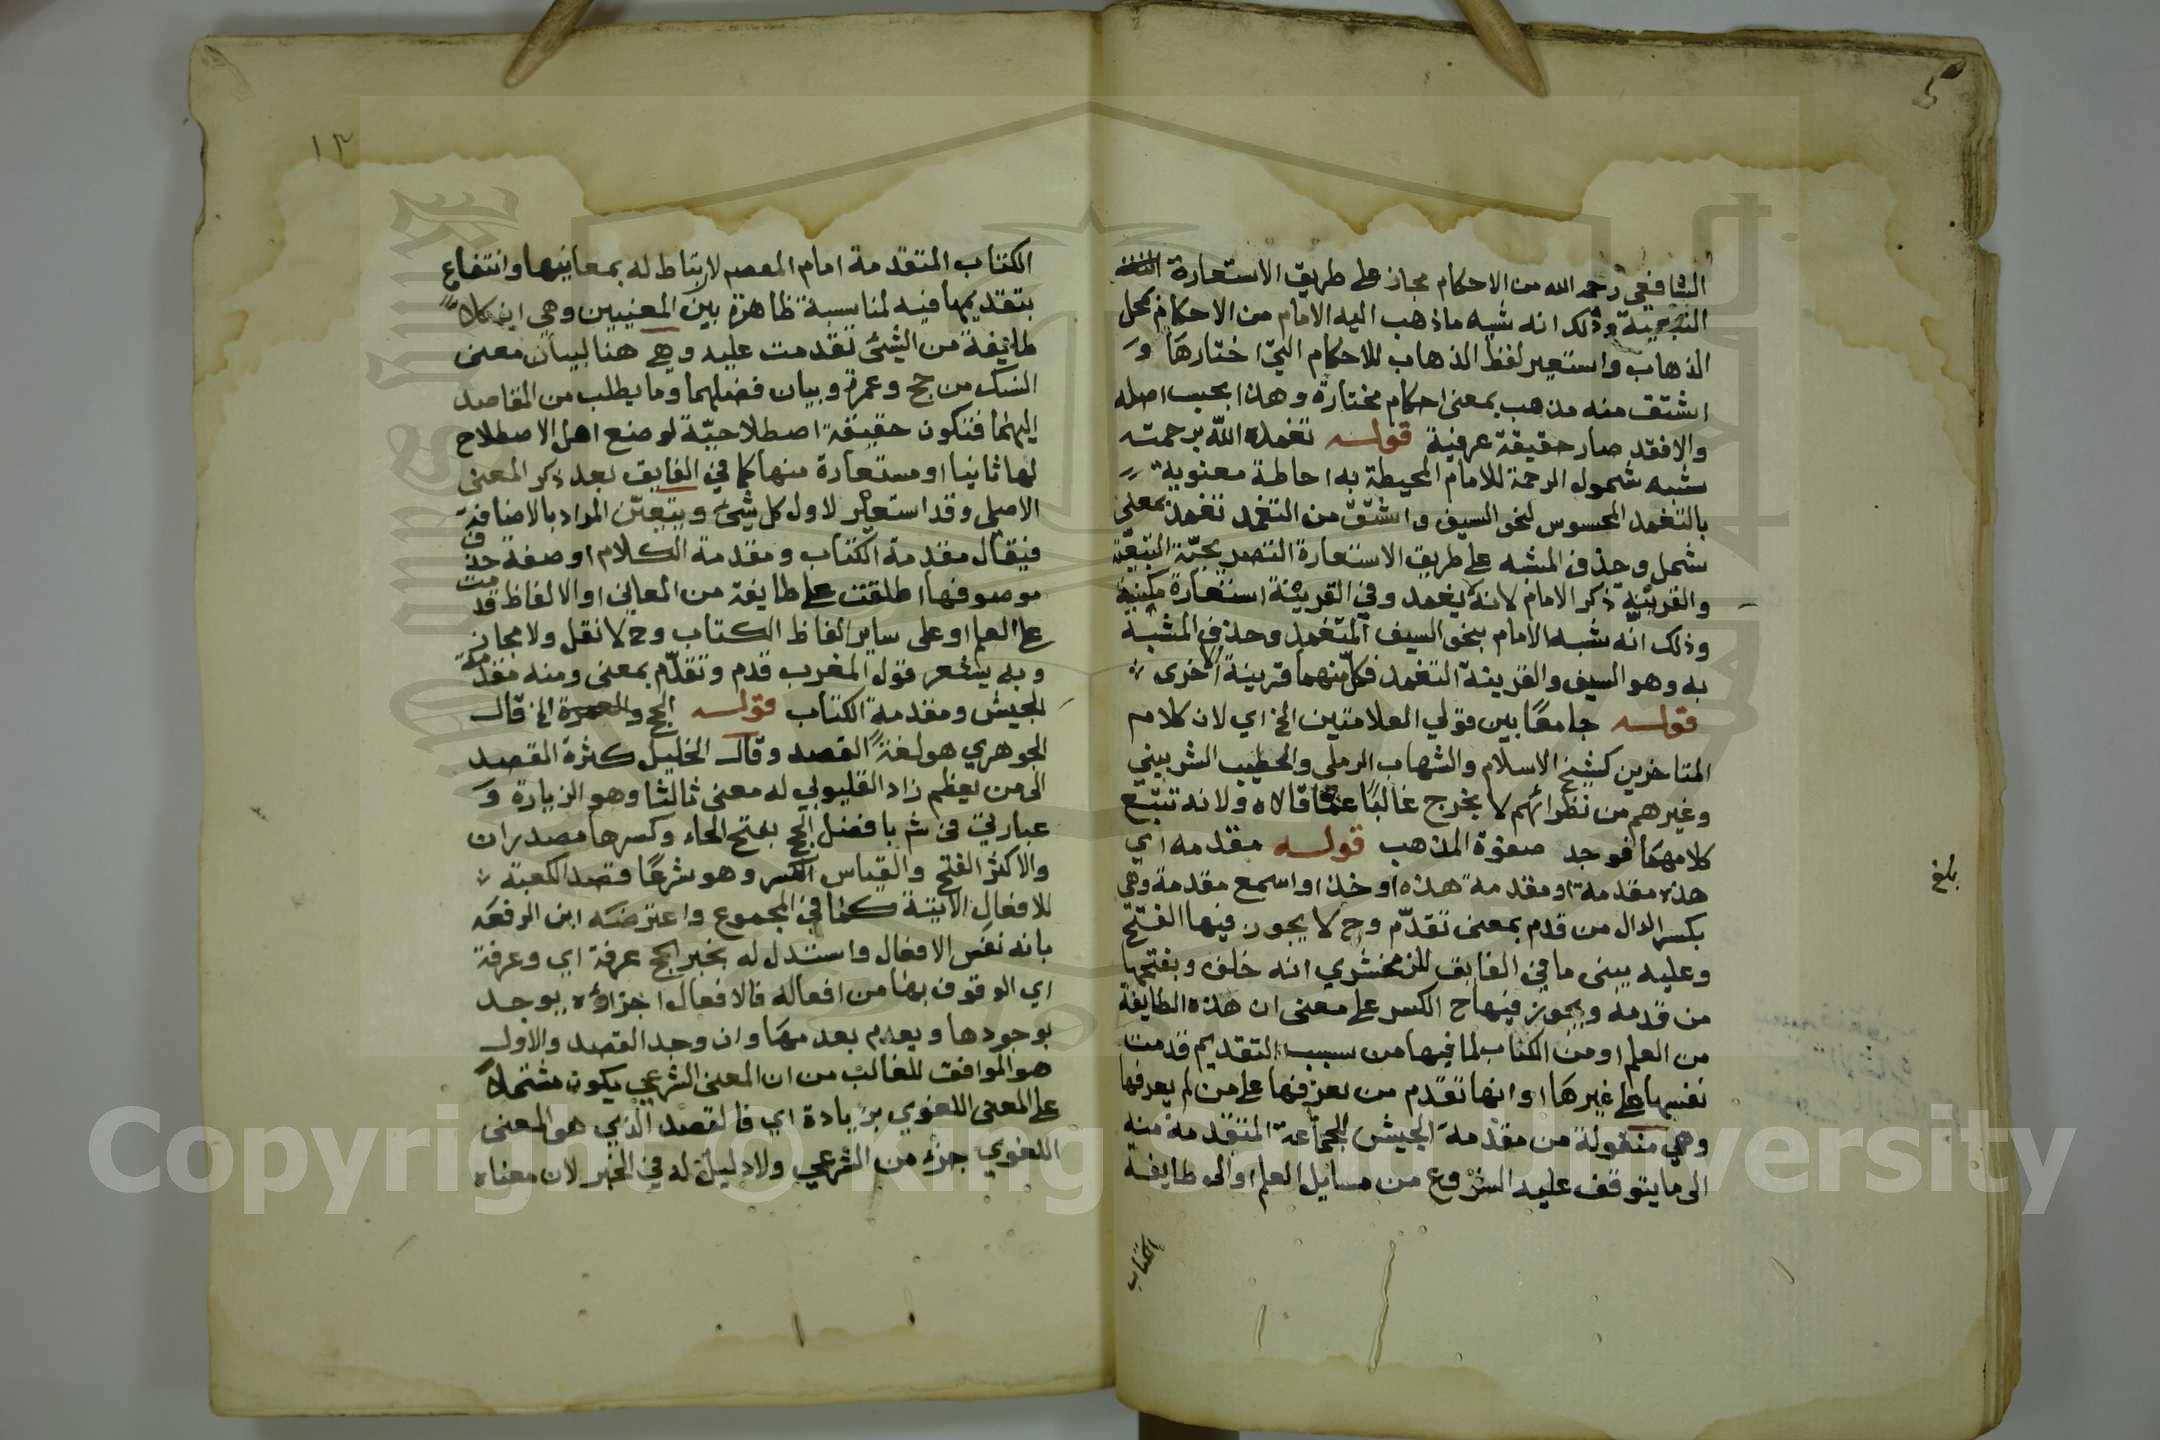 الشافعي رحمه الله من الاحكام مجاز على طريق الاستعارة
التبعية وذلك انه شبه ما ذهب اليه الامام من الاحكام بمحل
الذهاب واستعير لفظ الذهاب للاحكام التي اختارها و
اشتق منه مذهب بمعنى احكام مختارة وهذا بحسب اصله
والا فقد صار حقيقة عرفية قوله تغمده الله برحمته
شبه شمول الرحمة للامام المحيطة به احاطة معنوية
بالتغمد المحسوس لنحو السيف واشتق من التغمد تغمد بمعنى
شمل وحذف المشبه على طريق الاستعارة التصريحية التبعية
والقرينة ذكر الامام لانه لا يغمد وفي القرينة استعارة مكنية
وذلك انه شبه الامام بنحو السيف المتغمد وحذف المشبه
به وهو السيف والقرينة التغمد فكل منهما قرينة الاخرى
قوله جامعا بين قولي العلامتين الخ اي لان كلام
المتاخرين كشيخ الاسلام والشهاب الرملي والخطيب الشربيني
وغيرهم من نظرائهم لا يخرج غالبا عما قالاه ولانه تتبع
كلامهما فوجد صفوة المذهب قوله مقدمه اي
هذه مقدمة او مقدمة هذه او خذ او اسمع مقدمة وهي
بكسر الدال من قدم بمعنى تقدّم وح لا يجوز فيها الفتح
وعليه يبنى ما في الفايق للزمخشري انه خلف وبفتحها
من قدمه ويجوز فيها ح الكسر على معنى ان هذه الطايفة
من العلم او من الكتاب لما فيها من سبب التقديم قدمت
نفسها على غيرها او انها تقدم من يعرفها على من لم يعرفها
وهي منقولة من مقدمة الجيش للجماعة المتقدمة منه
الى ما يتوقف عليه الشروع من مسايل العلم او الى طايفة
الكتاب
بلغ
١٣
الكتاب المتقدمة امام المقصد لارتباط له بمعانيها وانتفاع
بتقديمها فيه لمناسبة ظاهرة بين المعنيين وهي
طايفة من الشيئ تقدمت عليه وهي هنا لبيان معنى
النسك من حج وعمرة وبيان فضلهما وما يطلب من القاصد
اليهما فتكون حقيقة اصطلاحيّة لوضع اهل الاصطلاح
لها ثانيا او مستعارة منها كما في الفايق بعد ذكر المعنى
الاصلي وقد استعير لاول كل شيئ ويتعيّن المراد بالاضافة
فيقال مقدمة الكتاب ومقدمة الكلام او صفة حذف
موصوفها اطلقت على طايفة من المعاني او الالفاظ قدمت
على العلم او على ساير الفاظ الكتاب وح لا نقل ولا مجاز
وبه يشعر قول المغرب قدم وتقدّم بمعنى ومنه مقدمة
الجيش ومقدمة الكتاب قوله الحج والعمرة الخ قال
الجوهري هو لغة القصد وقال الخليل كثرة القصد
الى من يعظم زاد القليوبي له معنى ثالثا وهو الزيارة و
عبارتي في ش بافضل الحج بفتح الحاء وكسرها مصدران
والاكثر الفتح والقياس الكسر وهو شرعا قصد الكعبة
للافعال الاتية كما في المجموع واعترضه ابن الرفعه
بانه نفس الافعال واستدل له بخبر الحج عرفة اي وعرفة
اي الوقوف بها من افعاله فالافعال اجزاؤه يوجد
بوجودها ويعدم بعدمها وان وجد القصد والاول
هو الموافق للغالب من ان المعنى الشرعي يكون مشتملا
على المعنى اللغوي بزيادة اي فالقصد الذي هو المعنى
اللغوي جزء من الشرعي ولا دليل له في الخبر لان معناه
Copyright © King Saud University